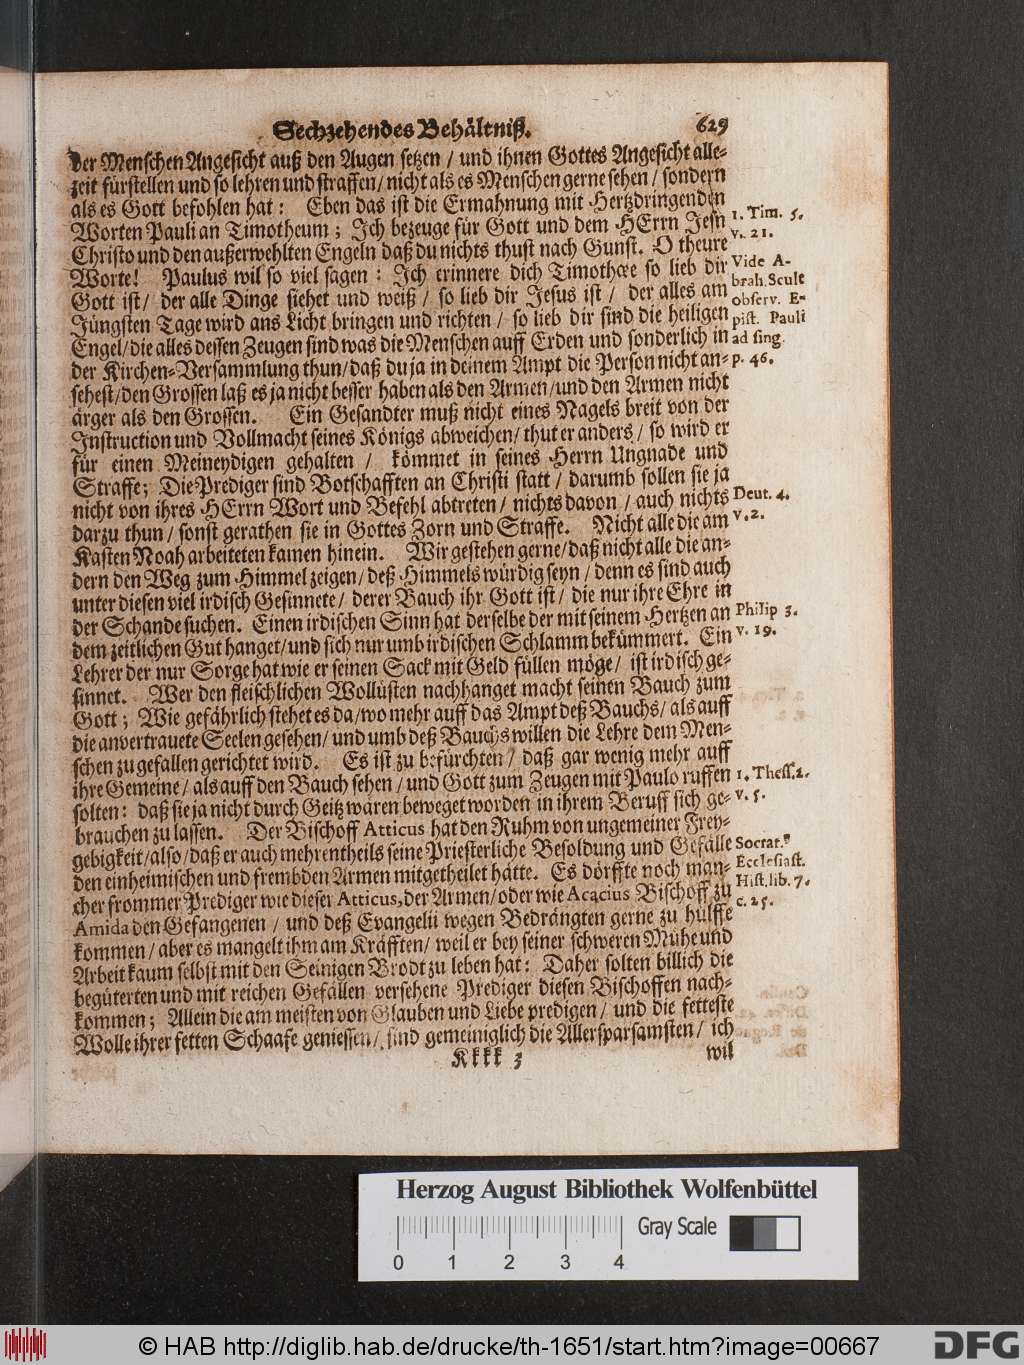 Sechzehendes Behältniß. 629
der Menschen Angesicht auß den Augen setzen / und ihnen Gottes Angesicht alle-
zeit fürstellen und so lehren und straffen / nicht als es Menschen gerne sehen / sondern
als es Gott befohlen hat: Eben das ist die Ermahnung mit Hertzdringenden
Worten Pauli an Timotheum; Ich bezeuge für Gott und dem HErrn Jesu
Christo und den außerwehlten Engeln daß du nichts thust nach Gunst. O theure
Worte! Paulus wil so viel sagen: Ich erinnere dich Timothee so lieb dir
Gott ist / der alle Dinge siehet und weiß / so lieb dir Jesus ist / der alles am
Jüngsten Tage wird ans Licht bringen und richten / so lieb dir sind die heiligen
Engel / die alles dessen Zeugen sind was die Menschen auff Erden und sonderlich in
der Kirchen-Versammlung thun / daß du ja in deinem Ampt die Person nicht an-
sehest / den Grossen laß es ja nicht besser haben als den Armen / und den Armen nicht
ärger als den Grossen. Ein Gesandter muß nicht eines Nagels breit von der
Instruction und Vollmacht seines Königs abweichen / thut er anders / so wird er
für einen Meineydigen gehalten / kömmet in seines Herrn Ungnade und
Straffe; Die Prediger sind Botschafften an Christi statt / darumb sollen sie ja
nicht von ihres HErrn Wort und Befehl abtreten / nichts davon / auch nichts
darzu thun / sonst gerathen sie in Gottes Zorn und Straffe. Nicht alle die am
Kasten Noah arbeiteten kamen hinein. Wir gestehen gerne / daß nicht alle die an-
dern den Weg zum Himmel zeigen / deß Himmels würdig seyn / denn es sind auch
unter diesen viel irdisch Gesinnete / derer Bauch ihr Gott ist / die nur ihre Ehre in
der Schande suchen. Einen irdischen Sinn hat derselbe der mit seinem Hertzen an
dem zeitlichen Gut hanget / und sich nur umb irdischen Schlamm bekümmert. Ein
Lehrer der nur Sorge hat wie er seinen Sack mit Geld füllen möge / ist irdisch ge-
sinnet. Wer den fleischlichen Wollüsten nachhanget macht seinen Bauch zum
Gott; Wie gefährlich stehet es da / wo mehr auff das Ampt deß Bauchs / als auff
die anvertrauete Seelen gesehen / und umb deß Bauchs willen die Lehre dem Men-
schen zu gefallen gerichtet wird. Es ist zu befürchten / daß gar wenig mehr auff
ihre Gemeine / als auff den Bauch sehen / und Gott zum Zeugen mit Paulo ruffen
solten: daß sie ja nicht durch Geitz wären beweget worden in ihrem Beruff sich ge-
brauchen zu lassen. Der Bischoff Atticus hat den Ruhm von ungemeiner Frey-
gebigkeit / also / daß er auch mehrentheils seine Priesterliche Besoldung und Gefälle
den einheimischen und frembden Armen mitgetheilet hätte. Es dörffte noch man-
cher frommer Prediger wie dieser Atticus, der Armen / oder wie Acacius Bischoff zu
Amida den Gefangenen / und deß Evangelii wegen Bedrängten gerne zu hülffe
kommen / aber es mangelt ihm am Kräfften / weil er bey seiner schweren Mühe und
Arbeit kaum selbst mit den Seinigen Brodt zu leben hat: Daher solten billich die
begüterten und mit reichen Gefällen versehene Prediger diesen Bischoffen nach-
kommen; Allein die am meisten von Glauben und Liebe predigen / und die fetteste
Wolle ihrer fetten Schaafe geniessen / sind gemeiniglich die Allersparsamsten / ich
Kkkk 3 wil
1. Tim. 5.
v. 21.
Vide A-
brah. Scult
observ. E-
pist. Pauli
ad sing.
p. 46.
Deut. 4.
v. 2.
Philip 3.
v. 19.
1. Thess. 2.
v. 5.
Socrat.
Ecclesiast.
Hist. lib. 7.
c. 25.
Herzog August Bibliothek Wolfenbüttel
Gray Scale
0 1 2 3 4
© HAB http://diglib.hab.de/drucke/th-1651/start.htm?image=00667
DFG